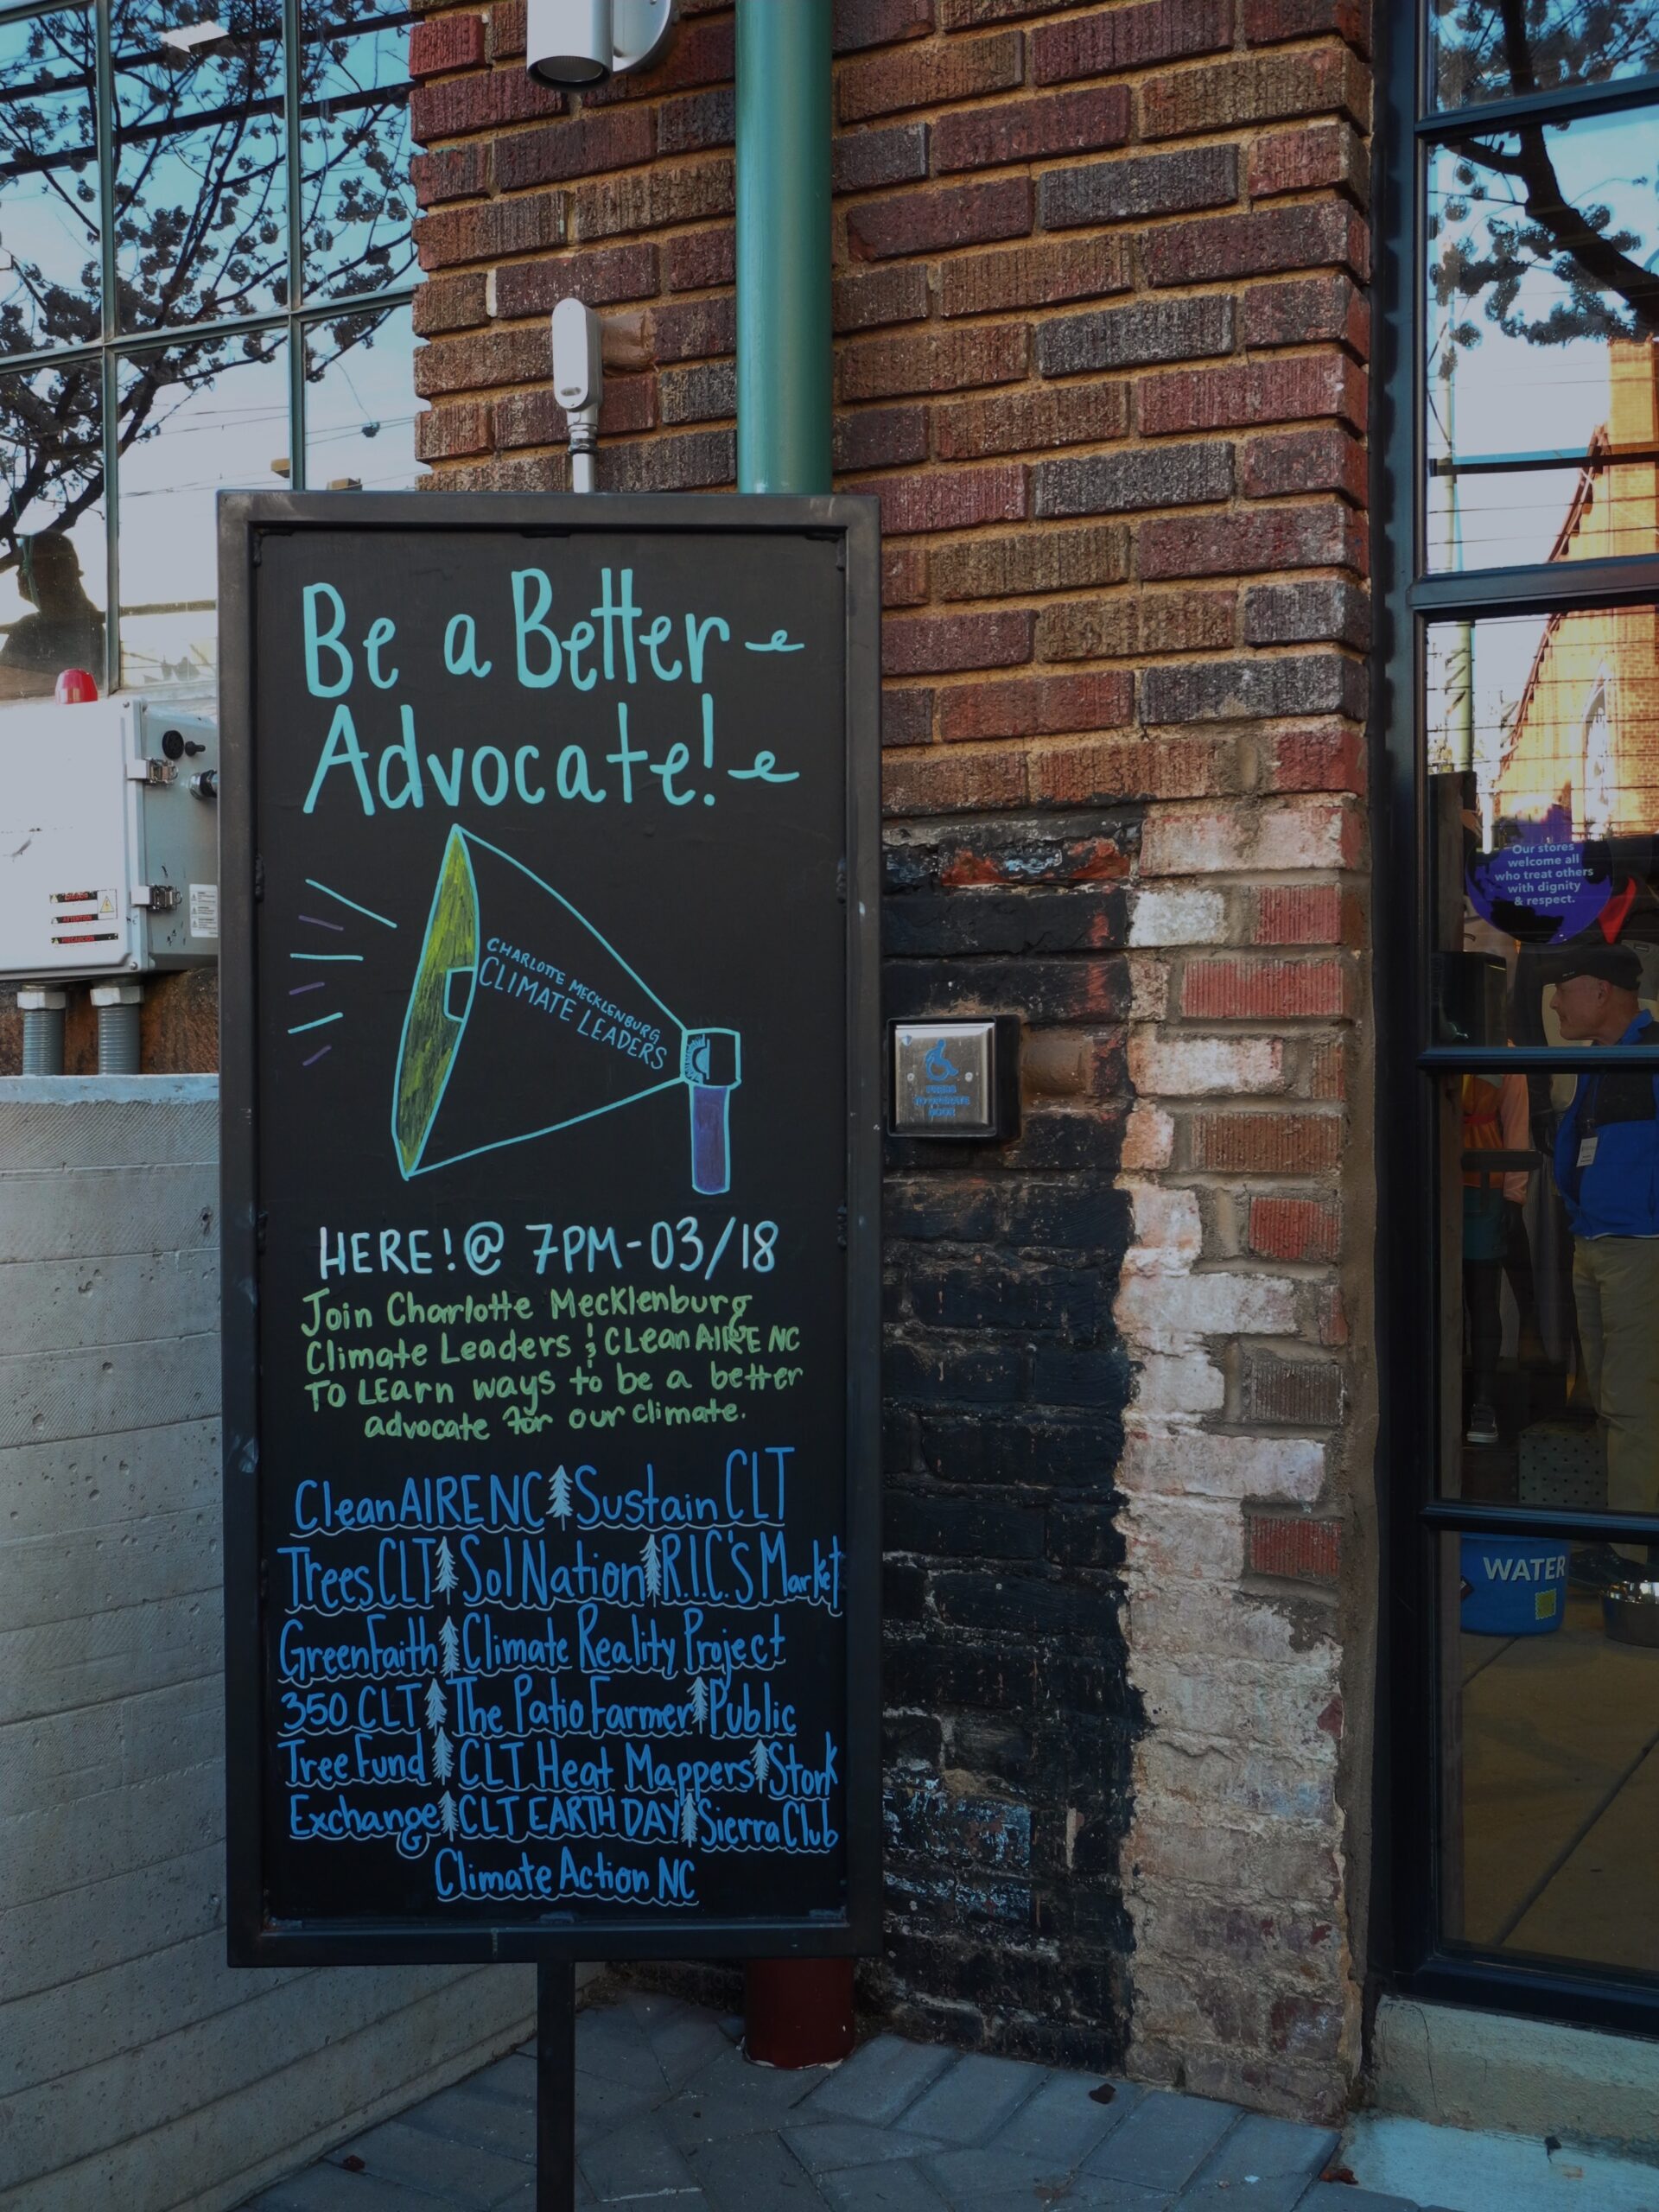 Be a Better
Advocate!
CHARLOTTE MECKLENBURG
CLIMATE LEADERS
HERE! @ 7PM-03/18
Join Charlotte Mecklenburg
Climate Leaders & CLeanAIRE NC
TO LEarn ways to be a better
advocate for our climate.
CleanAIRE NC Sustain CLT
TreesCLT Sol Nation R.I.C.'S Market
GreenFaith Climate Reality Project
350 CLT The Patio Farmer Public
Tree Fund CLT Heat Mappers Stork
Exchange CLT EARTH DAY Sierra Club
Climate Action NC
Our stores
welcome all
who treat others
with dignity
& respect.
PRESS
TO OPERATE
DOOR
WATER